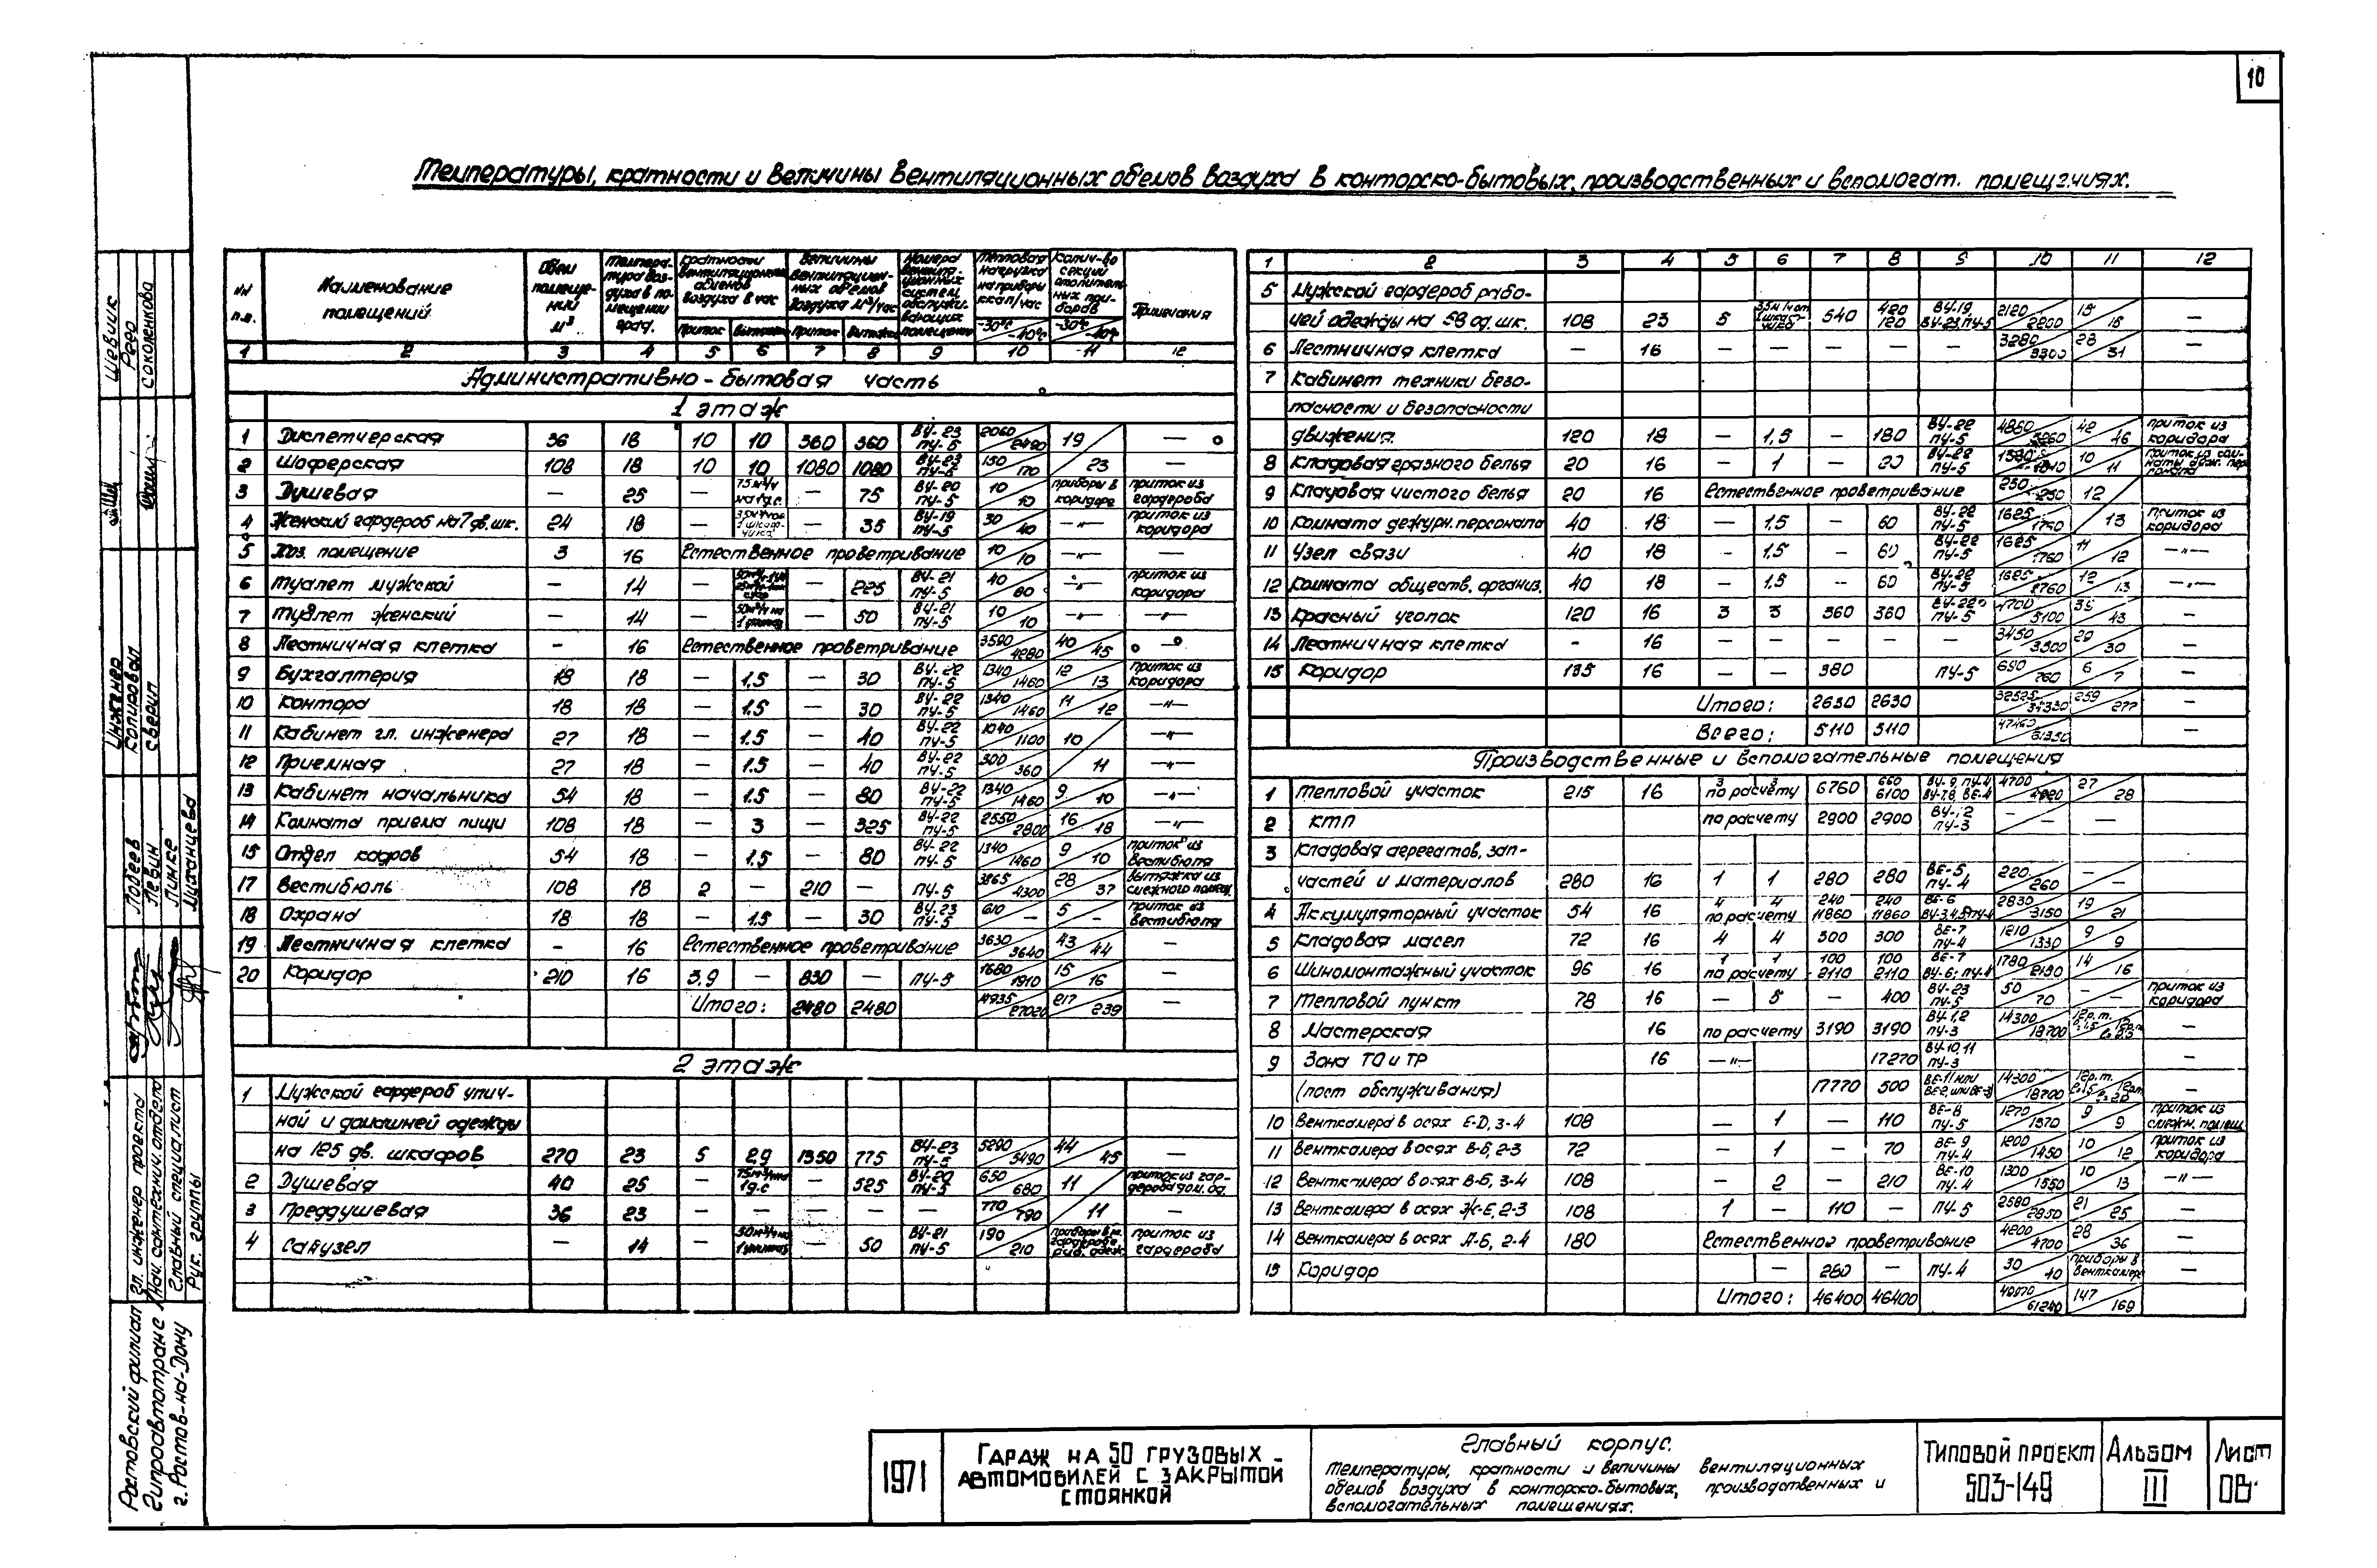 10
Температуры, кратности и величины вентиляционных объемов воздуха в конторско-бытовых, производственных и вспомогат.
NN п.п. Наименование помещений Объем помеще- ний м³ Темпера- тура воз- духа в по- мещении град. Кратности вентиляционных обменов воздуха в час Величины вентиляцион- ных объемов воздуха м³/час Номера систем Тепловая нагрузка на приборы ккал/час Колич-во секций ных при- боров Примечания
приток вытяжка приток вытяжка -30°с -40°с -30°с -40°с
1 2 3 4 5 6 7 8 9 10 11 12
Административно-бытовая часть
1 этаж
1 Диспетчерская 36 18 10 10 360 360 ВУ-23 ПУ-5 2060 2490 19 —
2 Шоферская 108 18 10 10 1080 1080 ВУ-23 150 170 23 —
3 Душевая — 25 — — 75 ВУ-20 ПУ-5 10 10 приборы в коридоре приток из гардероба
4 Женский гардероб на 7 дв. шк. 24 18 — — 35 ВУ-19 ПУ-5 30 40 —"— приток из коридора
5 Хоз. помещение 3 16 Естественное проветривание 10 10 —"— —
6 Туалет мужской — 14 — — 225 ВУ-21 ПУ-5 40 —"— приток из коридора
7 Туалет женский — 14 — — 50 ВУ-21 ПУ-5 10 10 —"— —"—
8 Лестничная клетка - 16 Естественное проветривание 4280 40 45
9 Бухгалтерия 18 18 — 1.5 — 30 ВУ-22 ПУ-5 1340 1460 12 13 приток из коридора
10 Контора 18 18 — 1.5 — 30 ВУ-22 ПУ-5 1340 1460 11 12 —"—
11 Кабинет гл. инженера 27 18 — 1.5 — 40 ВУ-22 ПУ-5 1040 1100 10 —"—
12 Приемная 27 18 — 1.5 — 40 ВУ-22 ПУ-5 300 360 11 —"—
13 Кабинет начальника 54 18 — 1.5 — 80 ВУ-22 ПУ-5 1340 1460 9 10 —"—
14 Комната приема пищи 108 18 — 3 — 325 ВУ-22 ПУ-5 2550 2800 16 18 —"—
15 Отдел кадров 54 18 — 1.5 — 80 ВУ-22 ПУ-5 1340 1460 9 10 приток из вестибюля
17 Вестибюль 108 18 2 — 210 — ПУ-5 3865 4300 28 37 вытяжка из смежного помещ.
18 Охрана 18 18 — 1.5 — 30 ВУ-23 ПУ-5 610 — 5 — приток из вестибюля
19 Лестничная клетка - 16 Естественное проветривание 3630 3640 43 44 —
20 Коридор 210 16 3,9 — 830 — ПУ-5 1680 1910 15 16 —
Итого: 2480 2480 27020 217 239 —
2 этаж
1 Мужской гардероб улич-
ной и домашней одежды
на 125 дв. шкафов 270 23 5 2.9 1350 775 ВУ-23 ПУ-5 5290 5490 44 45 —
2 Душевая 40 25 — — 525 ВУ-20 ПУ-5 650 680 11 приток из гар- дероба дом. од.
3 Преддушевая 36 23 — — — — — 770 790 11 —
4 Санузел — 14 — — 50 ВУ-21 ПУ-5 190 210 приток из гардероба
1 2 3 4 5 6 7 8 9 10 11 12
5 Мужской гардероб рабо-
чей одежды на 58 од. шк. 108 23 5 540 420 120 ВУ-19 ВУ-23, ПУ-5 2120 2200 15 15 —
6 Лестничная клетка — 16 — — — — — 3280 3300 28 31 —
7 Кабинет техники безо-
пасности и безопасности
движения. 120 18 — 1,5 — 180 ВУ-22 ПУ-5 4860 5260 42 46 приток из коридора
8 Кладовая грязного белья 20 16 — 1 — 20 ВУ-22 ПУ-5 10 11
9 Кладовая чистого белья 20 16 Естественное проветривание 250 250 12
10 Комната дежурн. персонала 40 18 — 1,5 — 60 ВУ-22 ПУ-5 1625 1760 13 приток из коридора
11 Узел связи 40 18 - 1,5 — 60 ВУ-22 ПУ-5 1625 1760 11 12 —"—
12 Комната обществ. организ. 40 18 - 1,5 — 60 ВУ-22 ПУ-5 1625 1760 12 13 —"—
13 Красный уголок 120 16 3 3 360 360 ВУ-22 ПУ-5 4700 5100 39 43 —
14 Лестничная клетка - 16 — — — — — 3450 3500 29 30 —
15 Коридор 135 16 — — 380 ПУ-5 690 760 6 7 —
Итого: 2630 2630 32525 34330 259 277 —
Всего: 5110 5110 47460 61350 —
Производственные и вспомогательные помещения
1 Тепловой участок 215 16 3 3 по расчету 6760 660 6100 ВУ-9, ПУ-4 ВУ-7,8, ВЕ-4 4700 4920 27 28
2 КТП по расчету 2900 2900 ПУ-3 — — —
3 Кладовая агрегатов, зап-
частей и материалов 280 16 1 1 280 280 ВЕ-5, ПУ-4 220 260 — —
4 Аккумуляторный участок 54 16 4 4 по расчету 240 11860 240 11860 ВЕ-6 ВУ-3,4,5, ПУ-4 2830 3150 19 21
5 Кладовая масел 72 16 4 4 300 300 ВЕ-7 ПУ-4 1210 1330 9 9
6 Шиномонтажный участок 96 16 1 1 по расчету 100 2110 100 2110 ВЕ-7 ВУ-6; ПУ-4 1780 2190 14 16
7 Тепловой пункт 78 16 — 5 — 400 ВУ-23 ПУ-5 50 70 — — приток из коридора
8 Мастерская 16 по расчету 3190 3190 ВУ-1,2 ПУ-3 14300 18700 —
9 Зона ТО и ТР 16 —"— 17270 ВУ-10,11 ПУ-3 —
(пост обслуживания) 17770 500 14300 18700 —
10 Венткамера в осях Е-Д, 3-4 108 — 1 — 110 ВЕ-8 ПУ-5 1270 1370 9 9 приток из смежн. помещ.
11 Венткамера в осях В-Б, 2-3 72 — 1 — 70 ВЕ-9 ПУ-4 1200 1450 10 12 приток из коридора
12 Венткамера в осях В-Б, 3-4 108 — 2 — 210 ВЕ-10 ПУ-4 1300 1550 10 13 —"—
13 Венткамера в осях Ж-Е, 2-3 108 1 — 110 — ПУ-5 2580 2850 21 25 —
14 Венткамера в осях А-Б, 2-4 180 Естественное проветривание 4200 4700 28 36 —
15 Коридор — 280 — ПУ-4 30 40 приборы в венткамере —
Итого: 46400 46400 61240 147 169
1971
Гараж на 50 грузовых
автомобилей с закрытой
стоянкой
Главный корпус.
Температуры, кратности и величины вентиляционных
объемов воздуха в конторско-бытовых, производственных и
вспомогательных помещениях.
Типовой проект
503-149
Альбом
III
Лист
ОВ
Ростовский филиал
Гипроавтотранс
г. Ростов-на-Дону
Гл. инженер проекта
Нач. сантехнич. отдела
Главный специалист
Рук. группы
Лобеев
Левин
Линке
Муханцева
Инженер
Копировал
Сверил
Шевчик
Сокоженкова